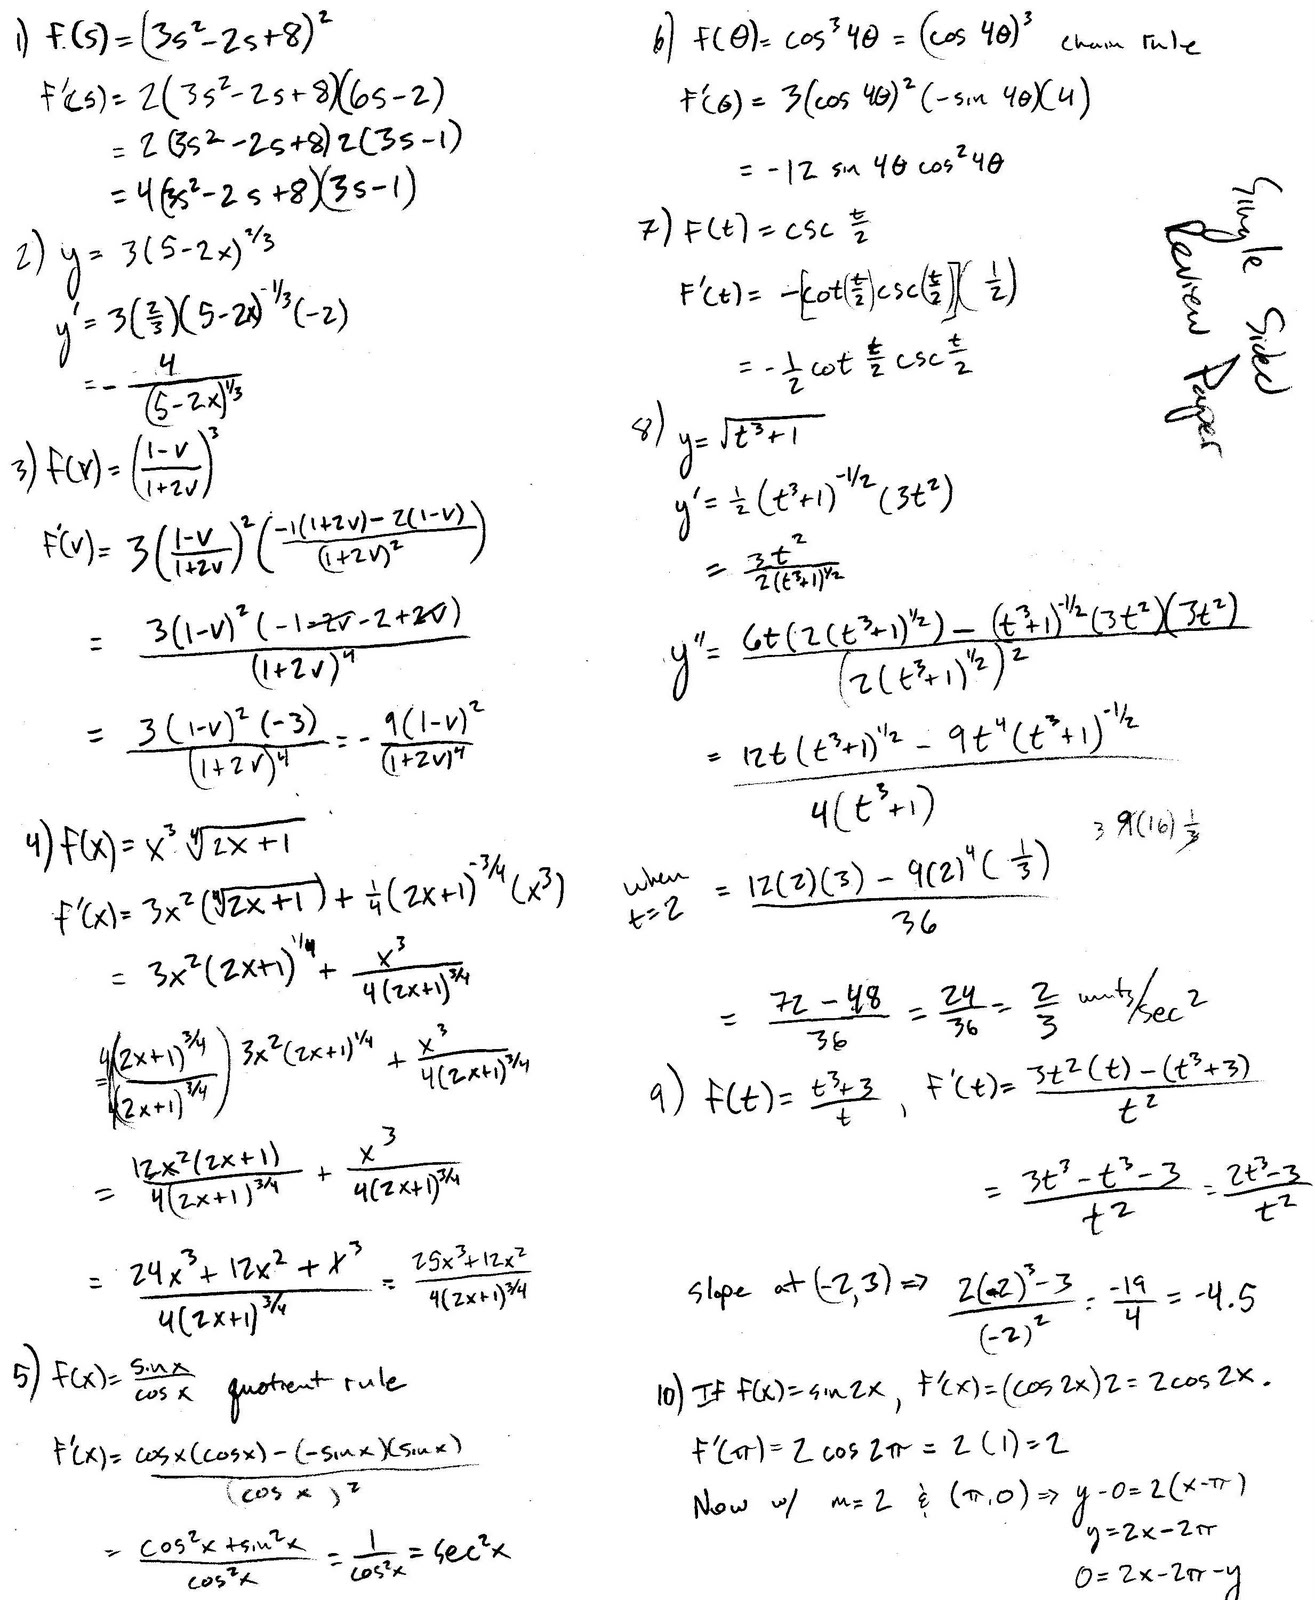 1) f(s) = (3s² - 2s + 8)²
f'(s) = 2(3s² - 2s + 8)(6s - 2)
= 2(3s² - 2s + 8)2(3s - 1)
= 4(3s² - 2s + 8)(3s - 1)
2) y = 3(5 - 2x)^(2/3)
y' = 3(2/3)(5 - 2x)^(-1/3)(-2)
= - 4/(5 - 2x)^(1/3)
3) f(v) = ((1 - v)/(1 + 2v))³
f'(v) = 3((1 - v)/(1 + 2v))²((-1(1 + 2v) - 2(1 - v))/(1 + 2v)²)
= 3(1 - v)²(-1 - 2v - 2 + 2v)/(1 + 2v)⁴
= 3(1 - v)²(-3)/(1 + 2v)⁴ = - 9(1 - v)²/(1 + 2v)⁴
4) f(x) = x³ ⁴√(2x + 1)
f'(x) = 3x²(⁴√(2x + 1)) + 1/4(2x + 1)^(-3/4)(x³)
= 3x²(2x + 1)^(1/4) + x³/(4(2x + 1)^(3/4))
= (4(2x + 1)^(3/4)/4(2x + 1)^(3/4)) 3x²(2x + 1)^(1/4) + x³/(4(2x + 1)^(3/4))
= 12x²(2x + 1)/(4(2x + 1)^(3/4)) + x³/(4(2x + 1)^(3/4))
= (24x³ + 12x² + x³)/(4(2x + 1)^(3/4)) = (25x³ + 12x²)/(4(2x + 1)^(3/4))
5) f(x) = sin x/cos x quotient rule
f'(x) = (cos x(cos x) - (-sin x)(sin x))/(cos x)²
= (cos²x + sin²x)/cos²x = 1/cos²x = sec²x
6) f(θ) = cos³ 4θ = (cos 4θ)³ chain rule
f'(θ) = 3(cos 4θ)²(-sin 4θ)(4)
= -12 sin 4θ cos² 4θ
7) f(t) = csc t/2
f'(t) = -[cot(t/2)csc(t/2)](1/2)
= -1/2 cot t/2 csc t/2
8) y = √(t³ + 1)
y' = 1/2 (t³ + 1)^(-1/2) (3t²)
= 3t²/(2(t³ + 1)^(1/2))
y'' = (6t(2(t³ + 1)^(1/2)) - (t³ + 1)^(-1/2)(3t²)(3t²))/(2(t³ + 1)^(1/2))²
= (12t(t³ + 1)^(1/2) - 9t⁴(t³ + 1)^(-1/2))/(4(t³ + 1))
3 9(16) 1/3
when t=2 = (12(2)(3) - 9(2)⁴(1/3))/36
= (72 - 48)/36 = 24/36 = 2/3 units/sec²
9) f(t) = (t³ + 3)/t , f'(t) = (3t²(t) - (t³ + 3))/t²
= (3t³ - t³ - 3)/t² = (2t³ - 3)/t²
slope at (-2,3) ⇒ (2(-2)³ - 3)/(-2)² = -19/4 = -4.5
10) If f(x) = sin 2x, f'(x) = (cos 2x)2 = 2cos 2x.
f'(π) = 2 cos 2π = 2(1) = 2
Now w/ m=2 & (π,0) ⇒ y - 0 = 2(x - π)
y = 2x - 2π
0 = 2x - 2π - y
Single Sided
Review Paper